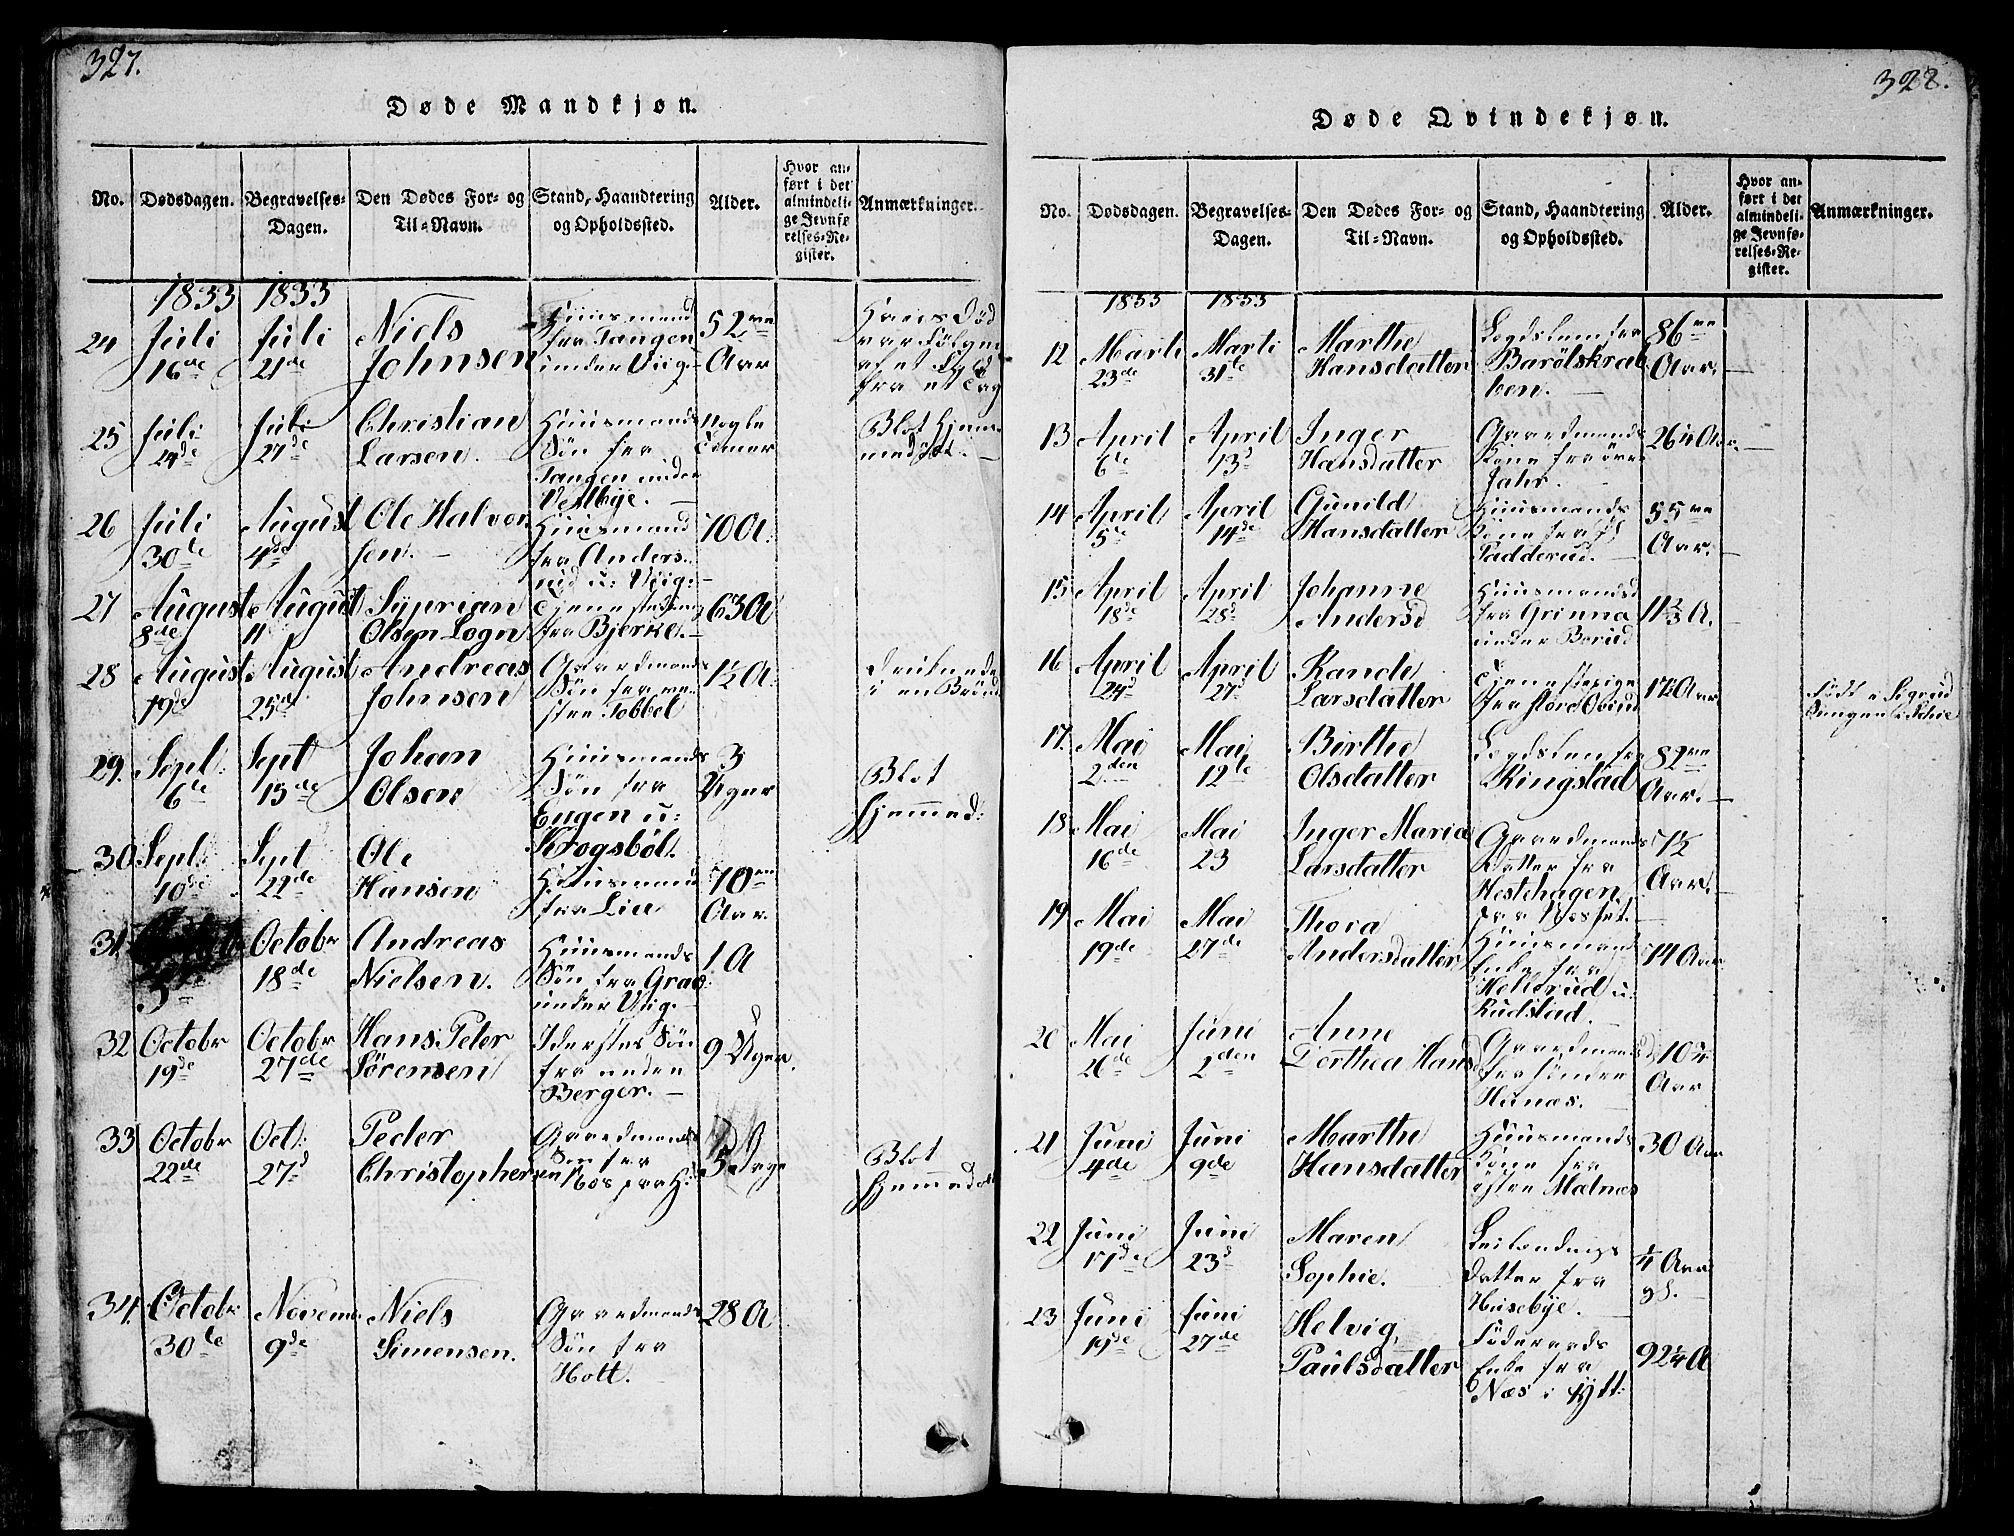 327.
Døde Mandkjøn.
No. Dødsdagen. Begravelses-Dagen. Den Dødes For- og Til-Navn. Stand, Haandtering og Opholdssted. Alder. Hvor anført i det almindelige Jevnførelses-Register. Anmærkninger.
1833 1833
24 Juli 16de Juli 21de Niels Johnsen Huusmand fra Tangen under Viig 52 Aar Hans Død var følgen af et
25 Juli 24de Juli 27de Christian Larsen. Huusmands Søn fra Tangen under Vestbye. nogle Timer Blot Hjemmedøbt.
26 Juli 30de August 4de Ole Halvorsen. Huusmand fra Andersrud u: Viig. 70 A.
27 August 8de August 11 Syprian Olsen Logn fra Bjerke. 63 A
28 August 19de August 25de Andreas Johnsen Gaardmands Søn fra vestre Tobbel 1½ A. Druknede i en Brønd
29. Sept. 6te Sept 15de Johan Olsen Huusmands Søn fra Eugen u: Krogsböl. 3 Uger Blot Hjemmed:
30. Sept. 10de Sept 22de Ole Hansen Huusmand fra Lier 70 Aar
31. 5te Octobr 18de Andreas Nielsen. Huusmands Søn fra Grao under Viig. 1 A
32 Octobr 19de Octobr 27de Hans Peter Sörensen Søn fra Berger. 9 Uger.
33 Octobr 22de Oct: 27d Peder Christophersen Gaardmands Søn fra 5 Dage Blot Hjemmedøbt
34. Octobr 30de Novem 9de Niels Simensen. Gaardmands Søn fra Hott. 28 A
328.
Døde Qvindekjøn.
No. Dødsdagen. Begravelses-Dagen. Den Dødes For- og Til-Navn. Stand, Haandtering og Opholdssted. Alder. Hvor anført i det almindelige Jevnførelses-Register. Anmærkninger.
1833 1833
12 Marti 23de Marti 31te Marthe Hansdatter Legdslem fra Barölskrabben. 86 Aar.
13 April 6te April 13d Inger Hansdatter Gaardmands Kone fra øvre Jahr. 26¼ Aar.
14 April 5te April 14de Gunild Hansdatter Huusmands Kone fra Padderud. 55 Aar.
15 April 18de April 28d Johanne Andersd Huusmandsd fra Grinna under Berud 11 A.
16 April 24d April 27d Rande Larsdatter Tjenestepige fra store Oerud 17½ Aar Født i
17. Mai 2den Mai 12te Birthe Olsdatter Legdslem fra Ringstad 82 Aar.
18 Mai 16de Mai 23 Inger Maria Larsdatter Gaardmands Datter fra Hestehagen. 7½ Aar.
19 Mai 19de Mai 27de Thora Andersdatter fra Vesset. Huusmands Enke fra Hellerud u: Rudstad. 74 Aar
20 Mai 26de Juni 2den Anne Dorthea Hansd Gaardmands fra søndre Hunæs. 10¾ Aar
21 Juni 4de Juni 9de Marthe Hansdatter Huusmands Kone fra østre Mælnæs 30 Aar
22 Juni 17de Juni 23d Maren Sophie. Leilændings Datter fra Husebye. ¼ Aar gl.
23 Juni 19de Juni 27de Helvig, Paulsdatter Föderaads Enke fra Næs i Ytt: 92¼ A